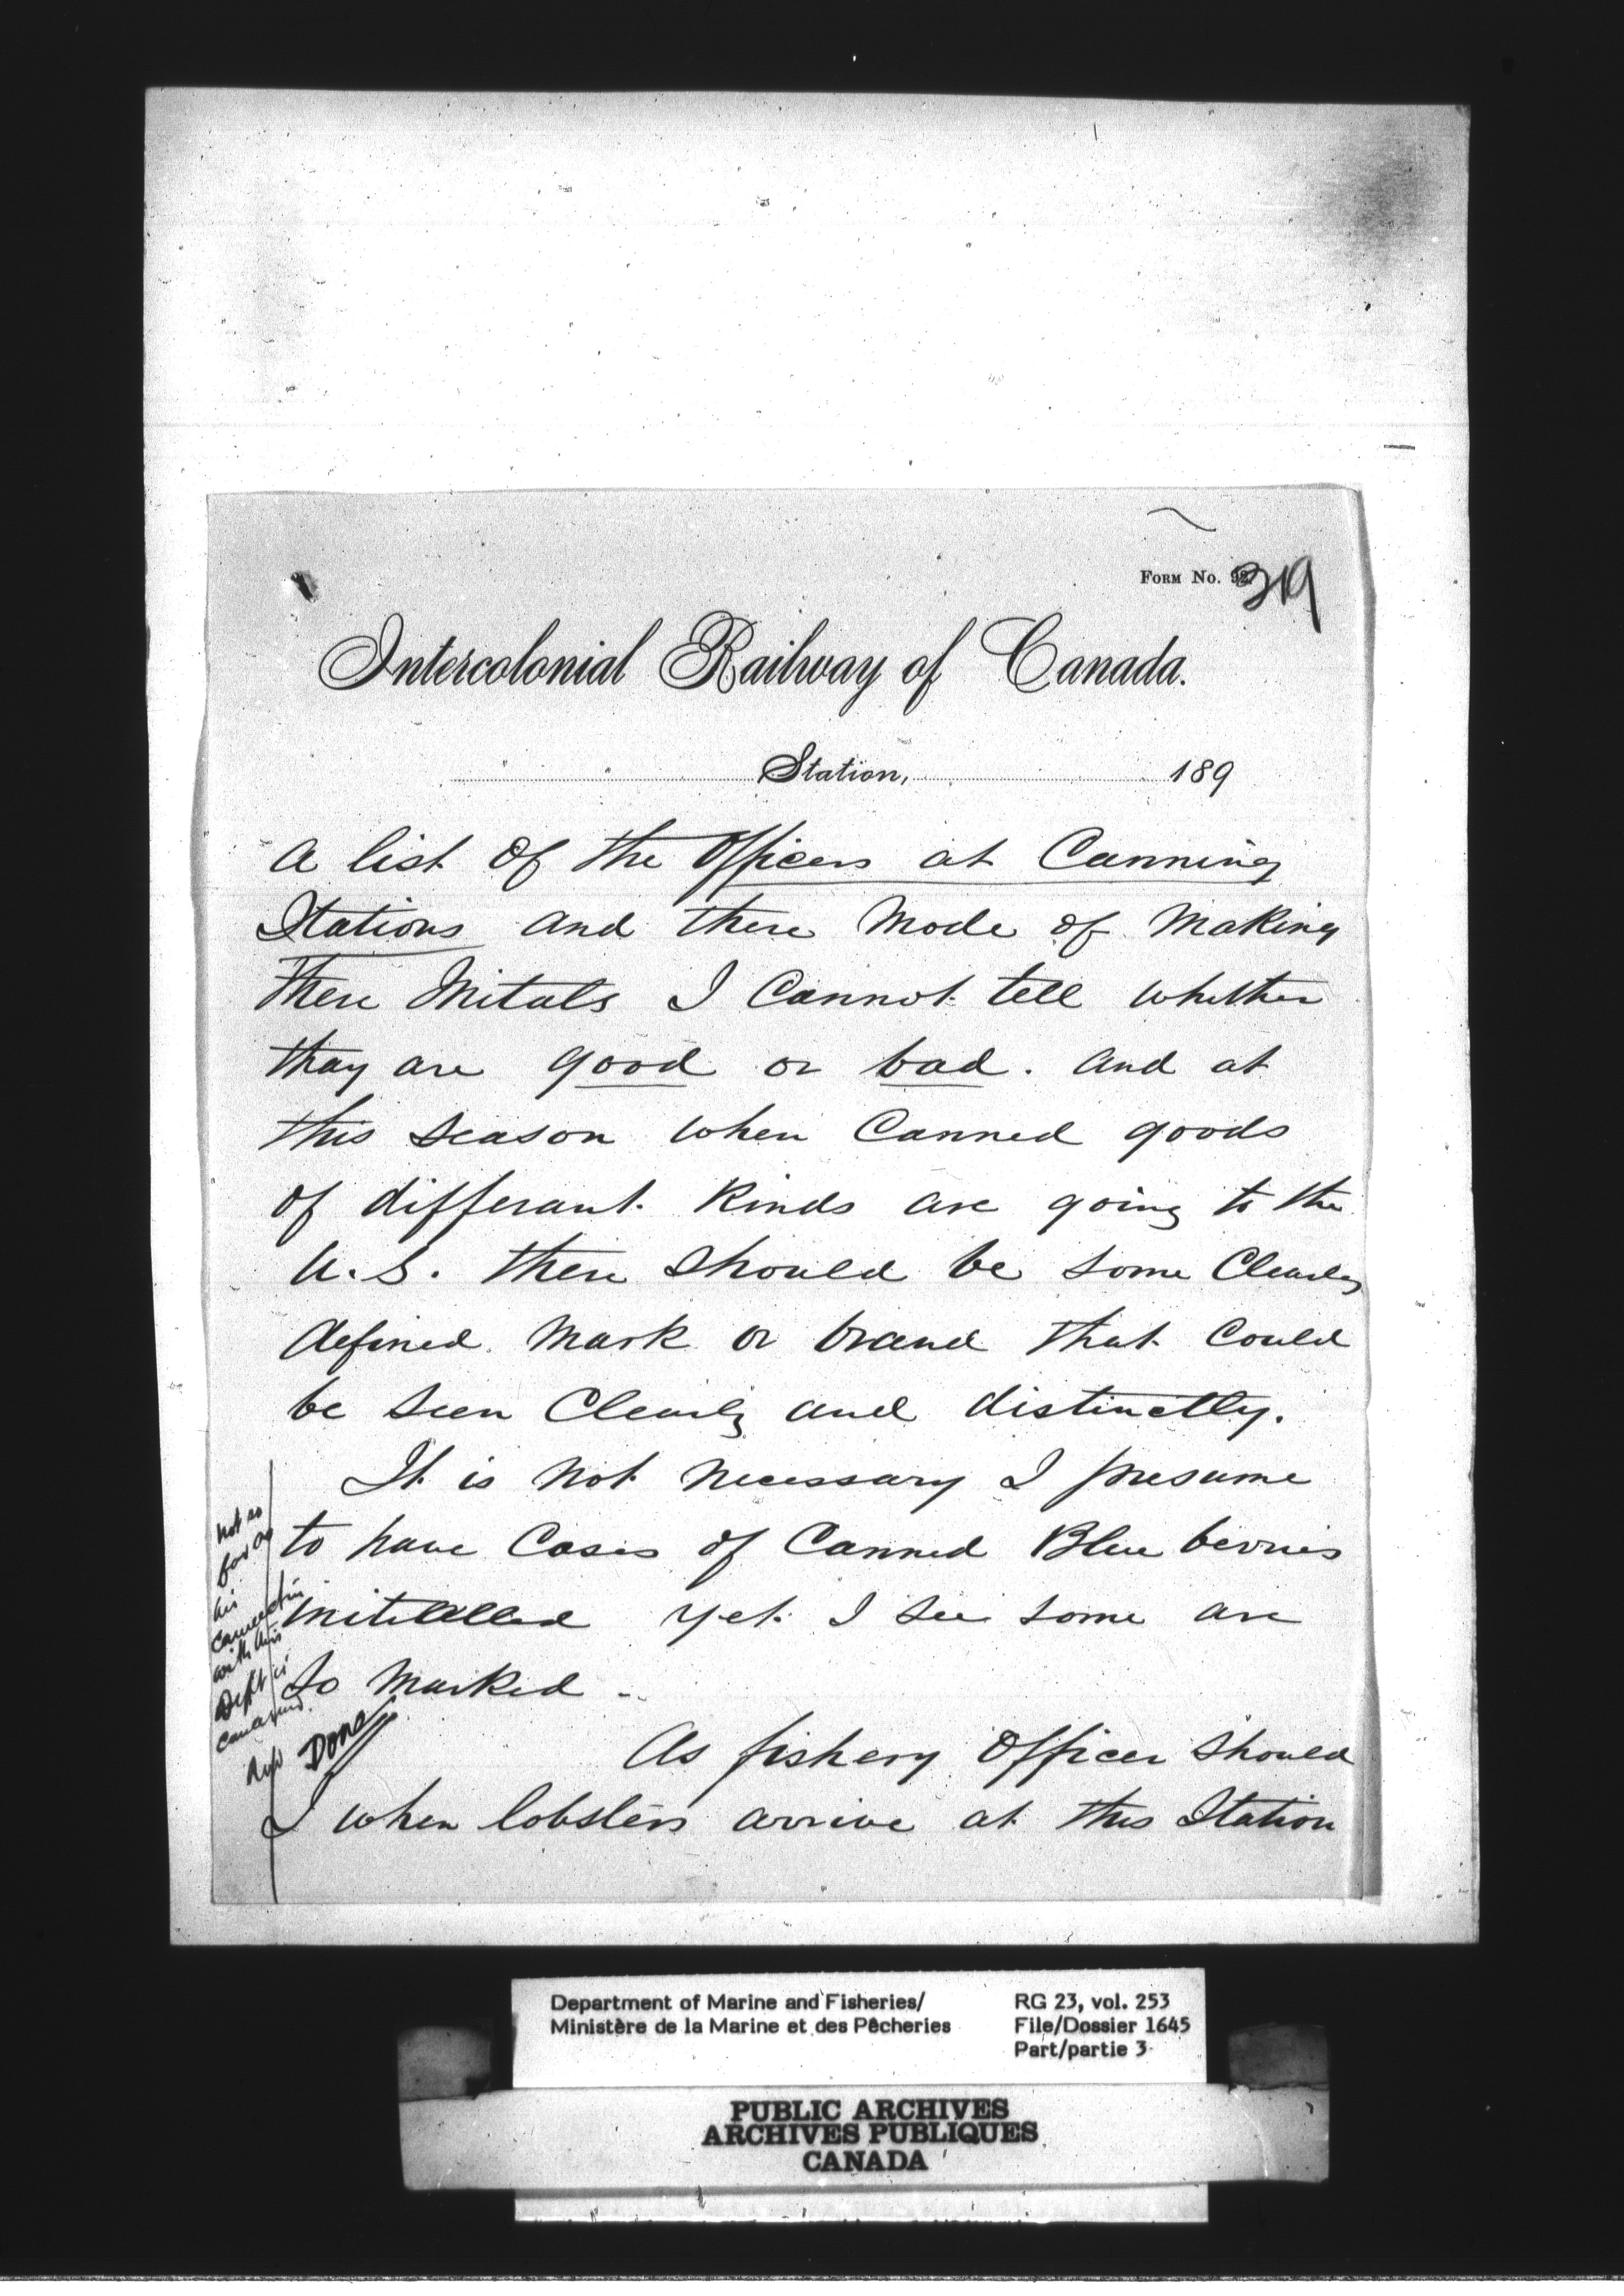 FORM No. 92.
319
Intercolonial Railway of Canada.
Station, 189
A list of the Officers at Canning
Stations and there Mode of Making
there Initals I Cannot tell whether
thay are good or bad. and at
this season when Canned goods
of differant Kinds are going to the
U.S. there should be some Clearly
defined Mark or brand that Could
be seen Clearly and distinctly.
It is Not Necessary I presume
to have Cases of Canned Blue berries
initialled yet I see some are
so Marked -
As fishery Officer should
I when lobsters arrive at this Station
Not so
far as
his
connection
with this
Dept is
concerned.
Done
Department of Marine and Fisheries/
Ministère de la Marine et des Pêcheries
RG 23, vol. 253
File/Dossier 1645
Part/partie 3
PUBLIC ARCHIVES
ARCHIVES PUBLIQUES
CANADA